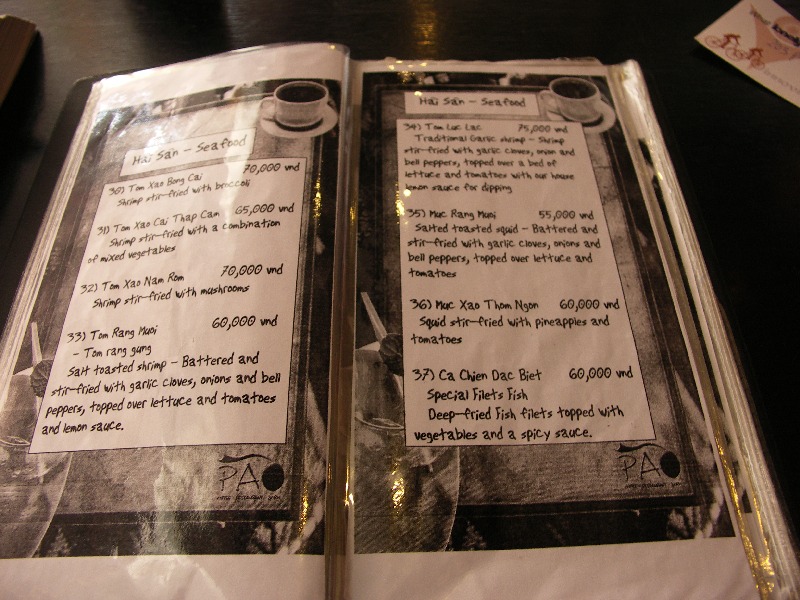 Hai San - Seafood
30) Tom Xao Bong Cai 70,000 vnd
Shrimp stir-fried with broccoli
31) Tom Xao Cai Thap Cam 65,000 vnd
Shrimp stir-fried with a combination
of mixed vegetables
32) Tom Xao Nam Rom 70,000 vnd
Shrimp stir-fried with mushrooms
33) Tom Rang Muoi 60,000 vnd
- Tom rang gung
Salt toasted shrimp - Battered and
stir-fried with garlic cloves, onions and bell
peppers, topped over lettuce and tomatoes
and lemon sauce.
PAO
Hai San - Seafood
34) Tom Luc Lac 75,000 vnd
Traditional Garlic shrimp - Shrimp
stir-fried with garlic cloves, onion and
bell peppers, topped over a bed of
lettuce and tomatoes with our house
lemon sauce for dipping
35) Muc Rang Muoi 55,000 vnd
Salted toasted squid - Battered and
stir-fried with garlic cloves, onions and
bell peppers, topped over lettuce and
tomatoes
36) Muc Xao Thom Ngon 60,000 vnd
Squid stir-fried with pineapples and
tomatoes
37) Ca Chien Dac Biet 60,000 vnd
Special Filets Fish
Deep-fried Fish filets topped with
vegetables and a spicy sauce.
PAO